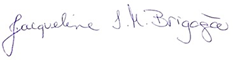 Jacqueline S. H. Brigagão